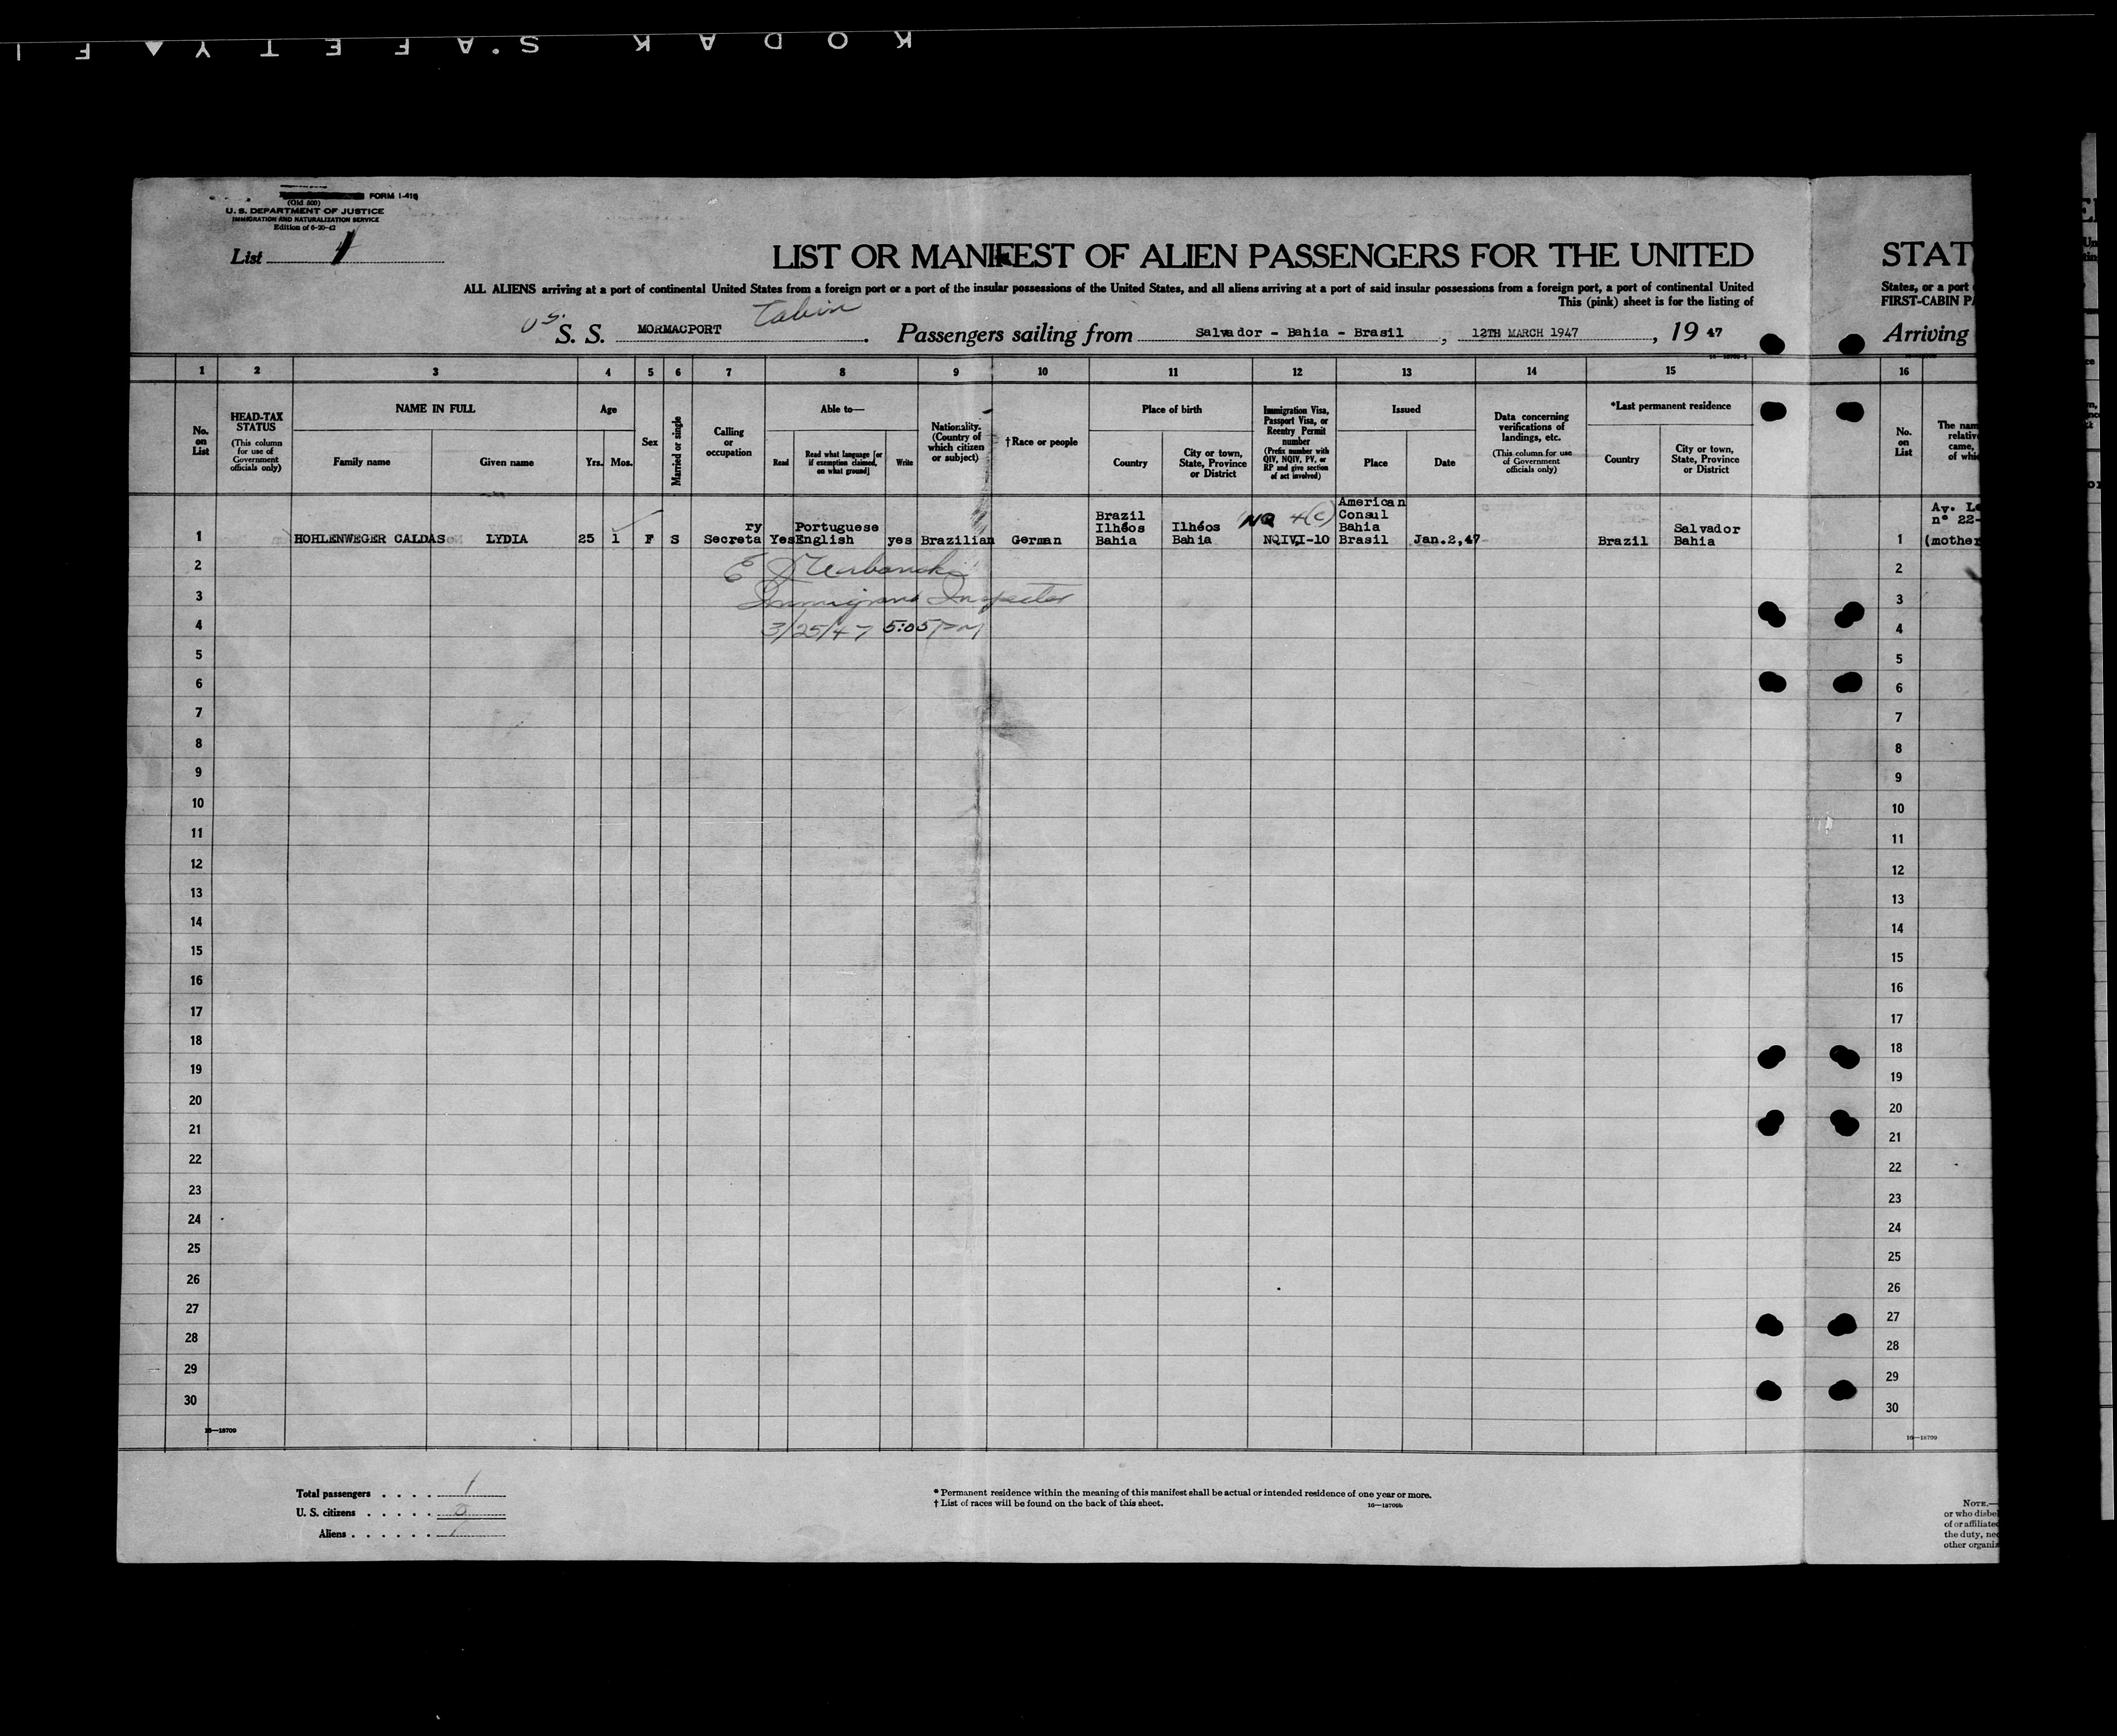 KODAK S.A F E T Y ▲ F I
FORM I-416
(Old 500)
U. S. DEPARTMENT OF JUSTICE
IMMIGRATION AND NATURALIZATION SERVICE
Edition of 6-20-42
List
LIST OR MANIFEST OF ALIEN PASSENGERS FOR THE UNITED
STAT
ALL ALIENS arriving at a port of continental United States from a foreign port or a port of the insular possessions of the United States, and all aliens arriving at a port of said insular possessions from a foreign port, a port of continental United
States, or a port
This (pink) sheet is for the listing of
FIRST-CABIN PA
Cabin
U.S.
S. S. MORMACPORT . Passengers sailing from Salvador - Bahia - Brasil , 12TH MARCH 1947 , 19 47
Arriving
1 2 3 4 5 6 7 8 9 10 11 12 13 14 15 16
No. on List
HEAD-TAX STATUS
(This column for use of Government officials only)
NAME IN FULL
Family name
Given name
Age
Yrs.
Mos.
Sex
Married or single
Calling or occupation
Able to—
Read
Read what language [or if exemption claimed, on what ground]
Write
Nationality. (Country of which citizen or subject)
†Race or people
Place of birth
Country
City or town, State, Province or District
Immigration Visa, Passport Visa, or Reentry Permit number
(Prefix number with QIV, NQIV, PV, or RP and give section of act involved)
Issued
Place
Date
Data concerning verifications of landings, etc.
(This column for use of Government officials only)
*Last permanent residence
Country
City or town, State, Province or District
No. on List
The nam
relativ
came,
of whi
1 HOHLENWEGER CALDAS LYDIA 25 1 F S Secretary Yes Portuguese English yes Brazilian German Brazil Ilhéos Bahia Ilhéos Bahia NQ 4(c) NQIVI-10 American Consul Bahia Brasil Jan.2,47 Brazil Salvador Bahia 1 Av. Le
nº 22-
(mother
2 2
Immigrant Inspector
3 3
3/25/47 5:05 PM
4 4
5 5
6 6
7 7
8 8
9 9
10 10
11 11
12 12
13 13
14 14
15 15
16 16
17 17
18 18
19 19
20 20
21 21
22 22
23 23
24 24
25 25
26 26
27 27
28 28
29 29
30 30
16—18709
16—18709
Total passengers . . . . 1
U. S. citizens . . . . . 0
Aliens . . . . . . 1
* Permanent residence within the meaning of this manifest shall be actual or intended residence of one year or more.
† List of races will be found on the back of this sheet.
16—18709b
NOTE.—
or who disbel
of or affiliated
the duty, nec
other organiz